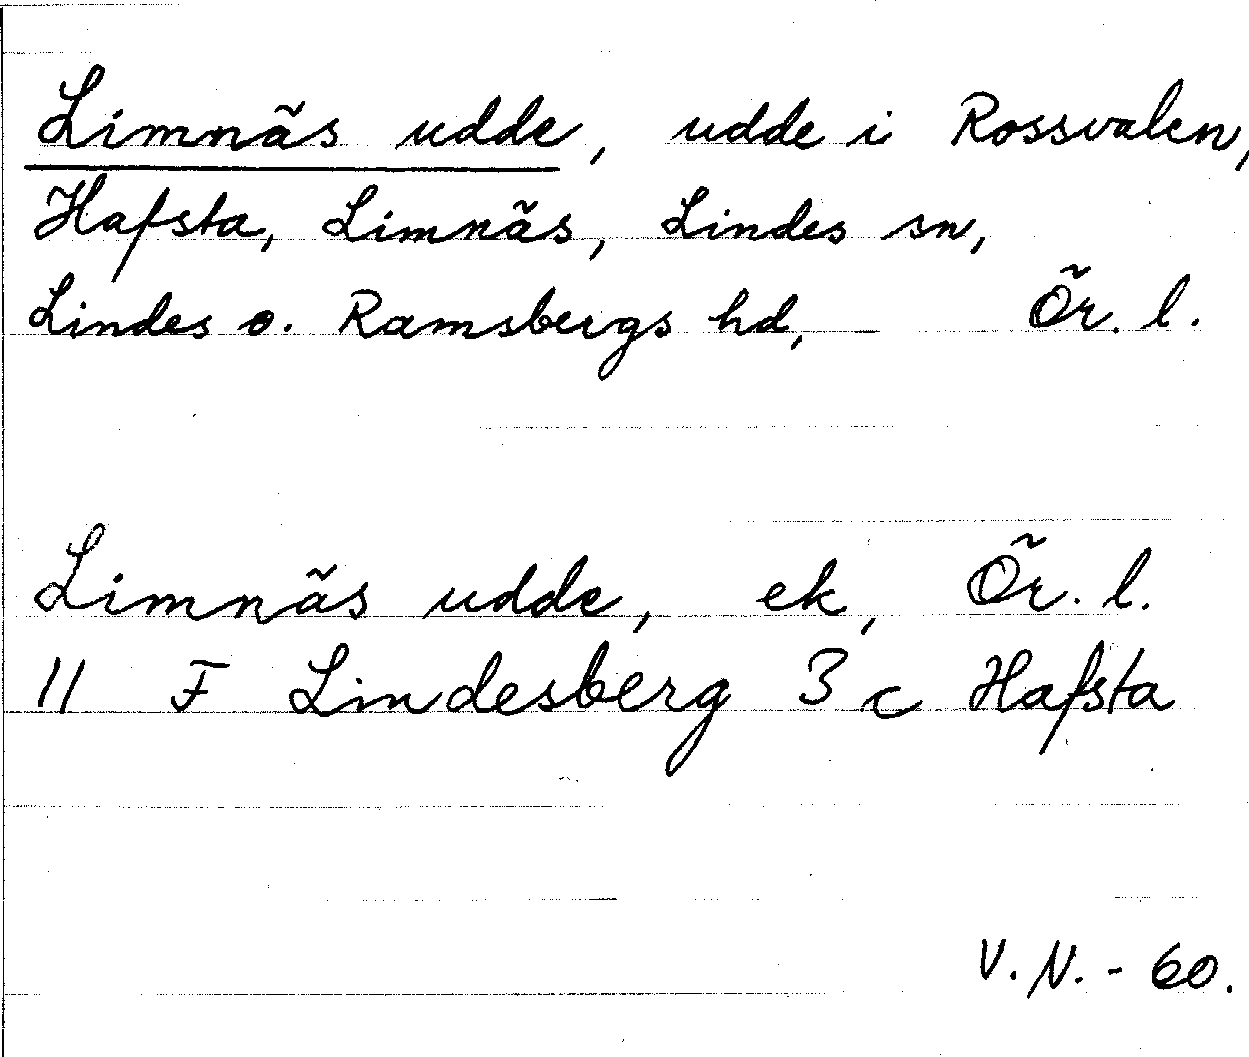 Limnäs udde, udde i Rossvalen,
Hafsta, Limnäs, Lindes sn,
Lindes o. Ramsbergs hd, Ör. l.
Limnäs udde, ek, Ör. l.
11 F Lindesberg 3 c Hafsta
V. N. - 60.